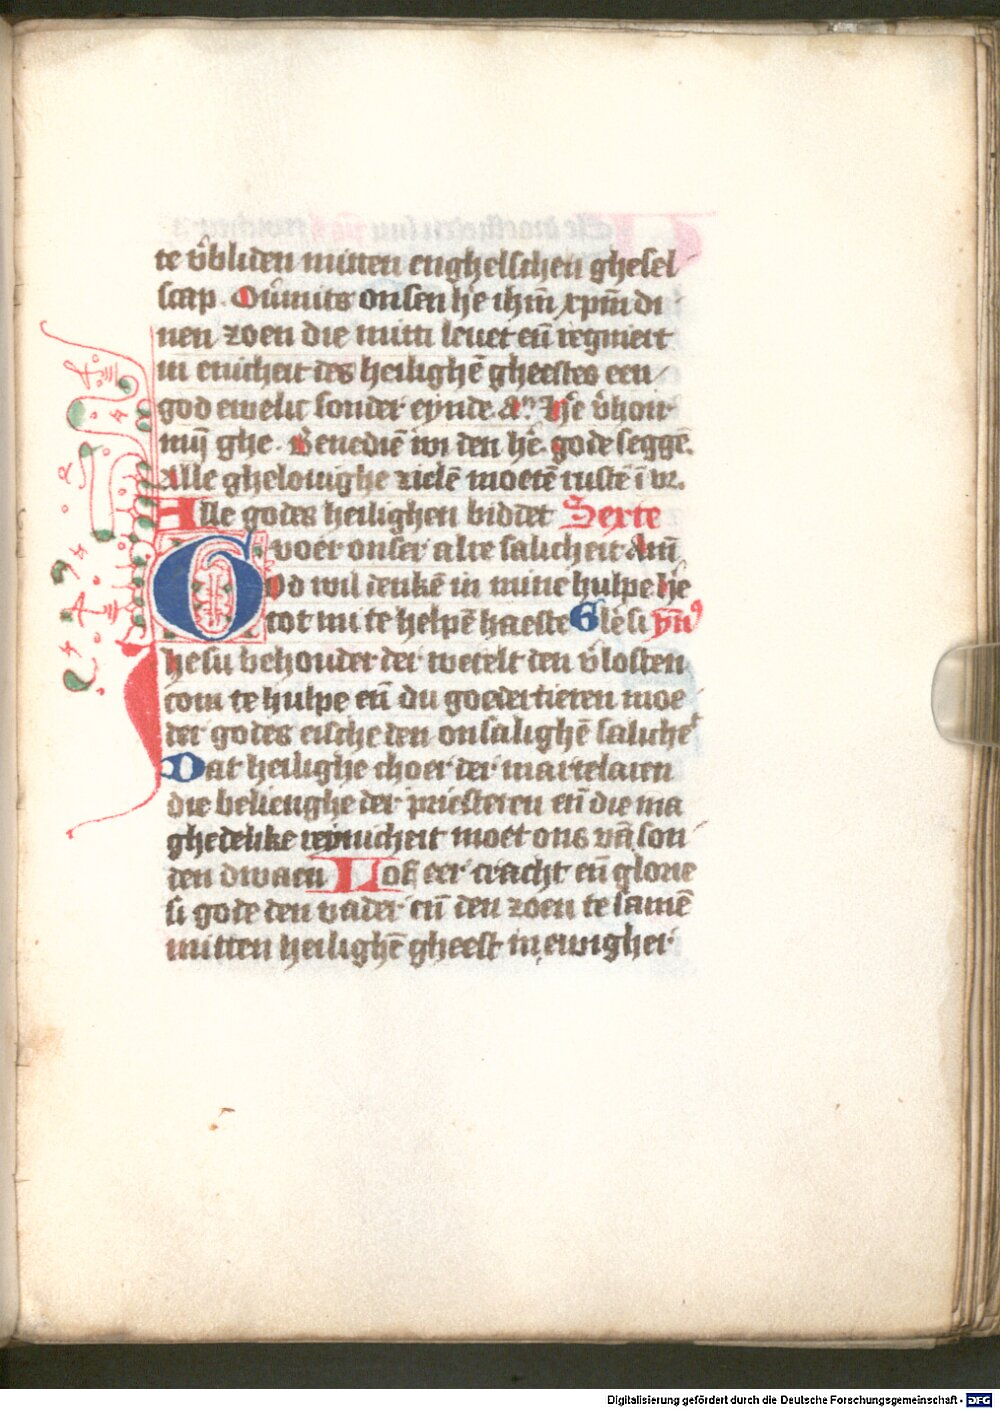 te v̄bliden mitten enghelschen ghesel
scap. Ou̅mits onsen he̅ ihm̅ xpm̅ di
nen zoen die mitti leuet en̅ regniert
in enicheit des heilighe̅ gheestes een
god ewelic sonder eynde. A. He̅ v̄hoir
mij ghe. Benedie̅ wi den he̅. gode segge̅.
Alle ghelouighe ziele̅ moete̅ ruste i̅ vr.
Alle godes heilighen biddet Sexte
voer onser alre salicheit Am̅
God wil denke̅ in mine hulpe he̅
tot mi te helpe̅ haeste Gle̅ si ym̅
Ihesu behouder der werelt den v̄losten
com te hulpe en̅ du goedertieren moe
der godes eische den onsalighe̅ saliche
Dat heilighe choer der martelaren
die belieughe der priesteren en̅ die ma
ghedelike reynicheit moet ons va̅ son
den dwaen Lof eer cracht en̅ glorie
si gode den vader en̅ den zoen te same̅
mitten heilighe̅ gheest in ewighei
Digitalisierung gefördert durch die Deutsche Forschungsgemeinschaft - DFG